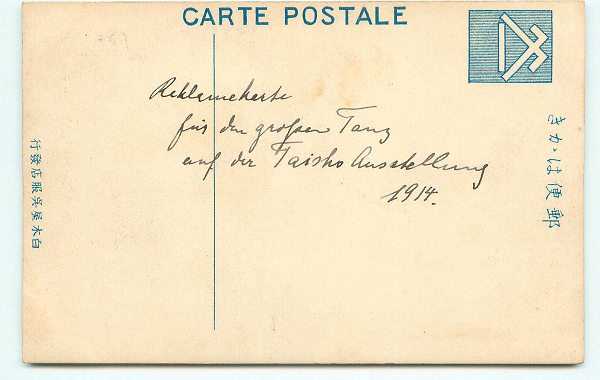 CARTE POSTALE
郵便はかき
Reklamekarte
für den großen Tanz
auf der Taisho Ausstellung
1914.
白木屋呉服店發行